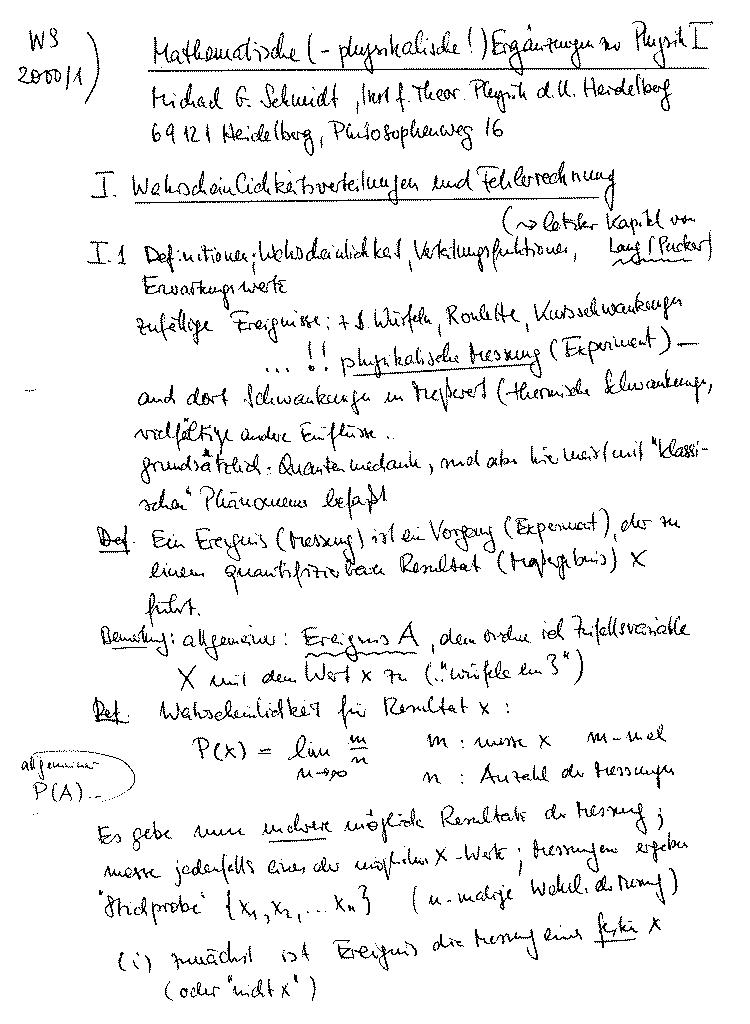 WS
2000/1)
Mathematische (-physikalische!) Ergänzungen zu Physik I
Michael G. Schmidt, Inst. f. Theor. Physik d. U. Heidelberg
69121 Heidelberg, Philosophenweg 16
I. Wahrscheinlichkeitsverteilungen und Fehlerrechnung
(→ letzter Kapitel von
I.1 Definitionen; Wahrscheinlichkeit, Verteilungsfunktionen, Lang/Pucker)
Erwartungswerte
zufällige Ereignisse: z.B. Würfeln, Roulette, Kursschwankungen
... !! physikalische Messung (Experiment) —
auch dort Schwankungen im Meßwert (thermische Schwankungen,
vielfältige andere Einflüsse.
grundsätzlich: Quantenmechanik, sind aber hier meist mit "klassi-
schen" Phänomenen befaßt
Def. Ein Ereignis (Messung) ist ein Vorgang (Experiment), der zu
einem quantifizierbaren Resultat (Meßergebnis) x
führt.
Bemerkung: allgemeiner: Ereignis A, dem ordne ich Zufallsvariable
X mit dem Wert x zu (.."würfele ein 3")
Def. Wahrscheinlichkeit für Resultat x:
P(x) = lim m/n m: messe x m-mal
n→∞ n: Anzahl der Messungen
allgemeiner
P(A)...
Es gebe nun mehrere mögliche Resultate der Messung;
messe jedenfalls einen der möglichen x-Werte; Messungen ergeben
"Stichprobe" {x₁, x₂, ... xₙ} (n-malige Wiederh. der Messung)
(i) zunächst ist Ereignis die Messung eines festen x
(oder "nicht x")